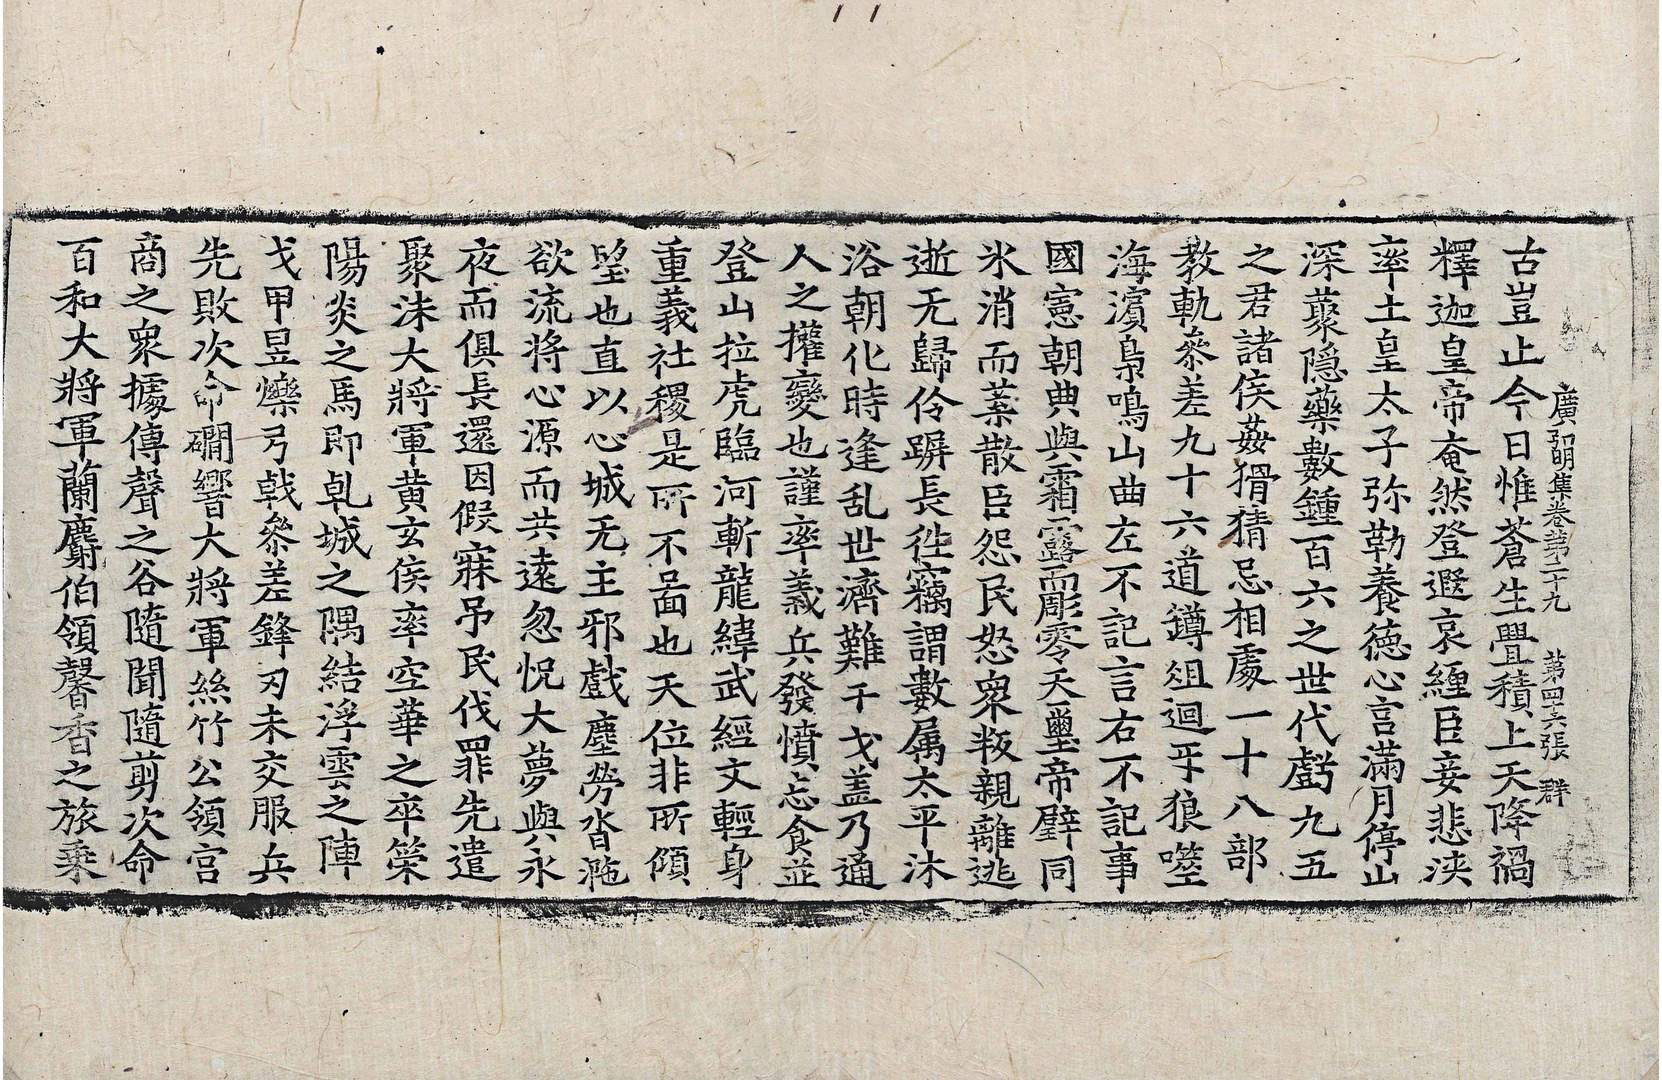 廣弘明集卷第二十九　第四十六張　群
古豈止今日惟蒼生疊積上天降禍
釋迦皇帝奄然登遐哀纏臣妾悲浹
率土皇太子弥勒養德心宫滿月停山
深藂隐藥數鍾百六之世代虧九五
之君諸侯姦猾猜忌相處一十八部
教軌叅差九十六道罇俎迴㸦狼噬
海濵梟鳴山曲左不記言右不記事
國憲朝典與霜露而彫零天璽帝璧同
氷消而葉散臣怨民怒衆叛親離逃
逝无歸伶竮長徃竊謂數属太平沐
浴朝化時逢乱世濟難干戈盖乃通
人之攉變也謹率義兵發憤忘食並
登山拉虎臨河斬龍緯武經文輕身
重義社稷是所不啚也天位非所傾
望也直以心城无主邪戲塵勞沓㴰
欲流將心源而共遠忽怳大夢與永
夜而俱長還因假寐吊民伐罪先遣
聚沫大將軍黄玄侯率空華之卒榮
陽炎之馬即乹城之隅結浮雲之陣
戈甲昱爍弓戟叅差鋒刃未交服兵
先敗次命礀響大將軍絲竹公領宫
商之衆據傳聲之谷隨聞隨剪次命
百和大將軍蘭麝伯領馨香之旅乘